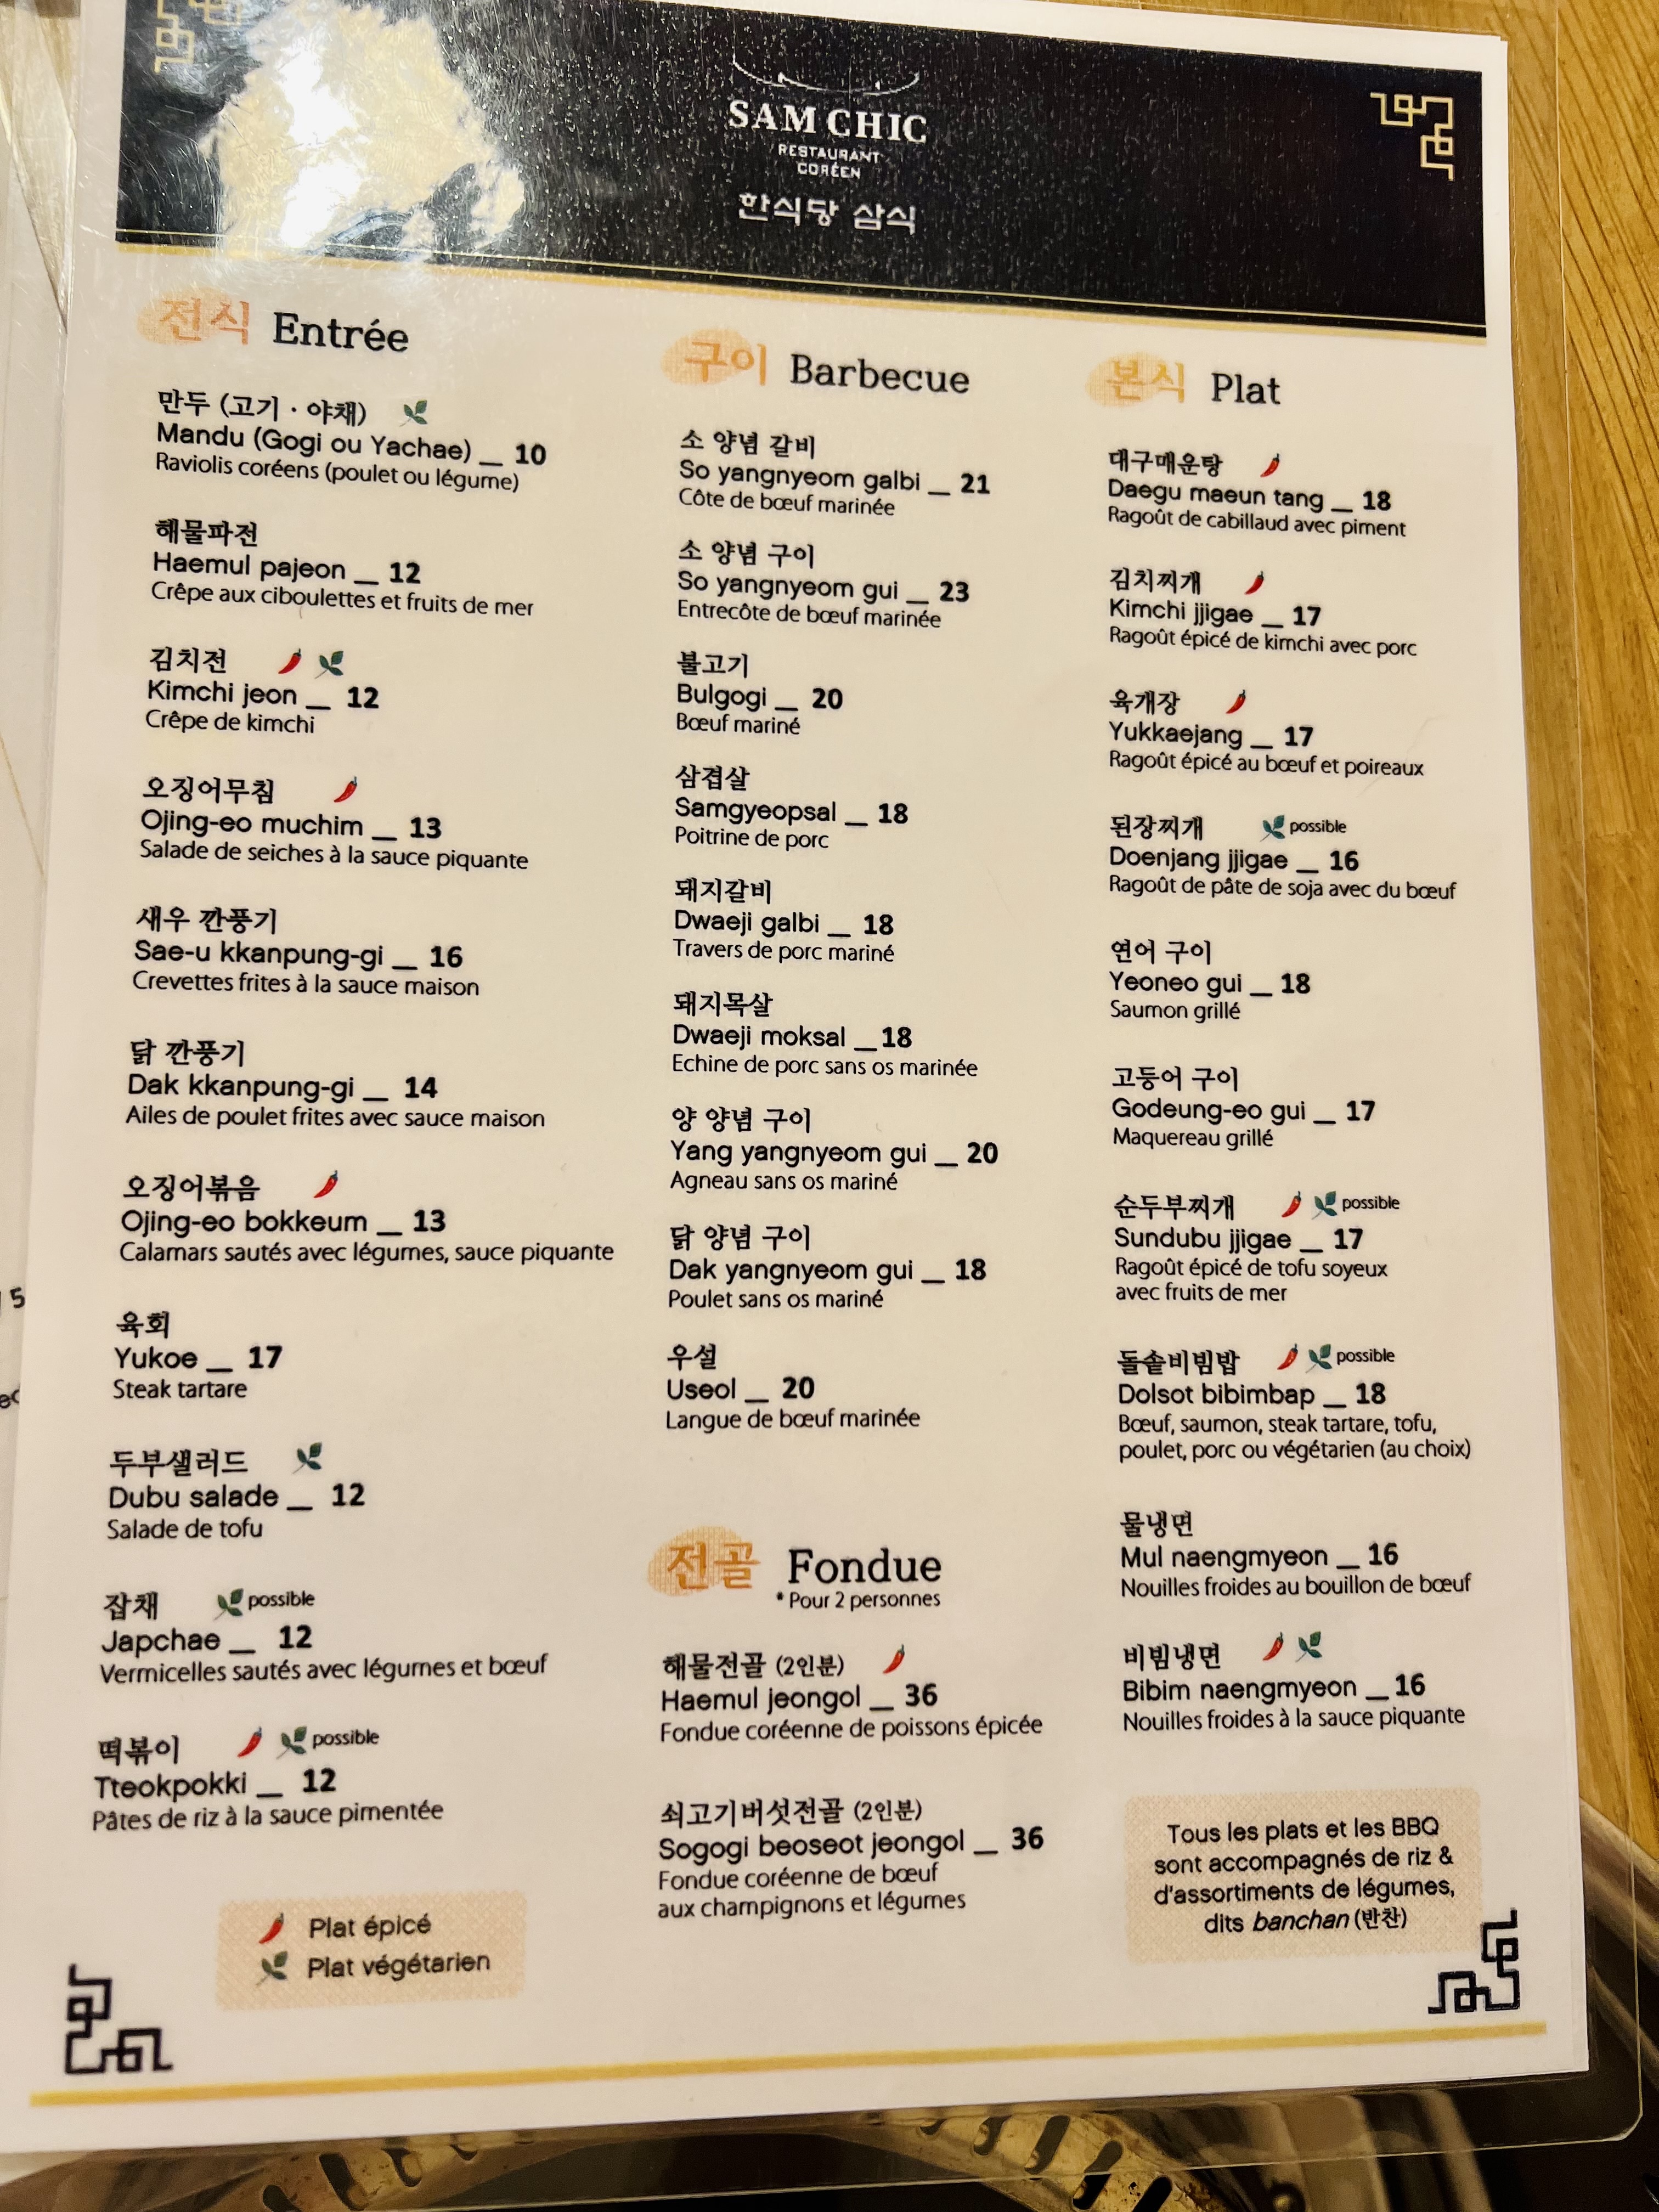 SAM CHIC
RESTAURANT
CORÉEN
한식당 삼식
전식 Entrée
만두 (고기 · 야채)
Mandu (Gogi ou Yachae) __ 10
Raviolis coréens (poulet ou légume)
해물파전
Haemul pajeon __ 12
Crêpe aux ciboulettes et fruits de mer
김치전
Kimchi jeon __ 12
Crêpe de kimchi
오징어무침
Ojing-eo muchim __ 13
Salade de seiches à la sauce piquante
새우 깐풍기
Sae-u kkanpung-gi __ 16
Crevettes frites à la sauce maison
닭 깐풍기
Dak kkanpung-gi __ 14
Ailes de poulet frites avec sauce maison
오징어볶음
Ojing-eo bokkeum __ 13
Calamars sautés avec légumes, sauce piquante
육회
Yukoe __ 17
Steak tartare
두부샐러드
Dubu salade __ 12
Salade de tofu
잡채 possible
Japchae __ 12
Vermicelles sautés avec légumes et bœuf
떡볶이 possible
Tteokpokki __ 12
Pâtes de riz à la sauce pimentée
Plat épicé
Plat végétarien
구이 Barbecue
소 양념 갈비
So yangnyeom galbi __ 21
Côte de bœuf marinée
소 양념 구이
So yangnyeom gui __ 23
Entrecôte de bœuf marinée
불고기
Bulgogi __ 20
Bœuf mariné
삼겹살
Samgyeopsal __ 18
Poitrine de porc
돼지갈비
Dwaeji galbi __ 18
Travers de porc mariné
돼지목살
Dwaeji moksal __ 18
Echine de porc sans os marinée
양 양념 구이
Yang yangnyeom gui __ 20
Agneau sans os mariné
닭 양념 구이
Dak yangnyeom gui __ 18
Poulet sans os mariné
우설
Useol __ 20
Langue de bœuf marinée
전골 Fondue
* Pour 2 personnes
해물전골 (2인분)
Haemul jeongol __ 36
Fondue coréenne de poissons épicée
쇠고기버섯전골 (2인분)
Sogogi beoseot jeongol __ 36
Fondue coréenne de bœuf
aux champignons et légumes
본식 Plat
대구매운탕
Daegu maeun tang __ 18
Ragoût de cabillaud avec piment
김치찌개
Kimchi jjigae __ 17
Ragoût épicé de kimchi avec porc
육개장
Yukkaejang __ 17
Ragoût épicé au bœuf et poireaux
된장찌개 possible
Doenjang jjigae __ 16
Ragoût de pâte de soja avec du bœuf
연어 구이
Yeoneo gui __ 18
Saumon grillé
고등어 구이
Godeung-eo gui __ 17
Maquereau grillé
순두부찌개 possible
Sundubu jjigae __ 17
Ragoût épicé de tofu soyeux
avec fruits de mer
돌솥비빔밥 possible
Dolsot bibimbap __ 18
Bœuf, saumon, steak tartare, tofu,
poulet, porc ou végétarien (au choix)
물냉면
Mul naengmyeon __ 16
Nouilles froides au bouillon de bœuf
비빔냉면
Bibim naengmyeon __ 16
Nouilles froides à la sauce piquante
Tous les plats et les BBQ
sont accompagnés de riz &
d'assortiments de légumes,
dits banchan (반찬)
5